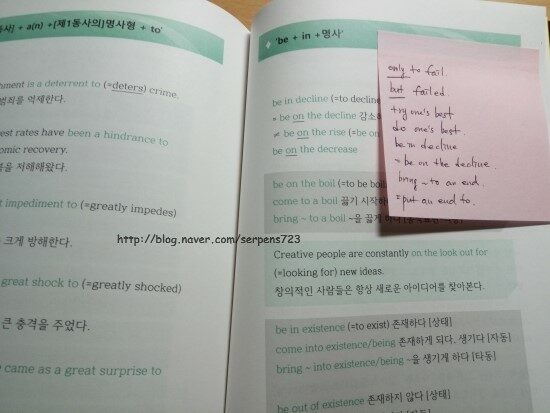 사] + a(n) +[제1동사의]명사형 + to'
hment is a deterrent to (=deters) crime.
범죄를 억제한다.
est rates have been a hindrance to
omic recovery.
을 저해해왔다.
t impediment to (=greatly impedes)
크게 방해한다.
great shock to (=greatly shocked)
큰 충격을 주었다.
e came as a great surprise to
'be + in +명사'
be in decline (=to decline) 감소하
= be on the decline
≠ be on the rise (=be on
be on the decrease
be on the boil (=to be boil
come to a boil 끓기 시작하
bring ~ to a boil ~을 끓게 하다
Creative people are constantly on the look out for
(=looking for) new ideas.
창의적인 사람들은 항상 새로운 아이디어를 찾아본다.
be in existence (=to exist) 존재하다 [상태]
come into existence/being 존재하게 되다, 생기다 [자동]
bring ~ into existence/being ~을 생기게 하다 [타동]
be out of existence 존재하지 않다 [상태]
only to fail.
but failed.
try one's best
do one's best.
be in decline
= be on the decline.
bring ~ to an end.
= put an end to.
http://blog.naver.com/serpens723